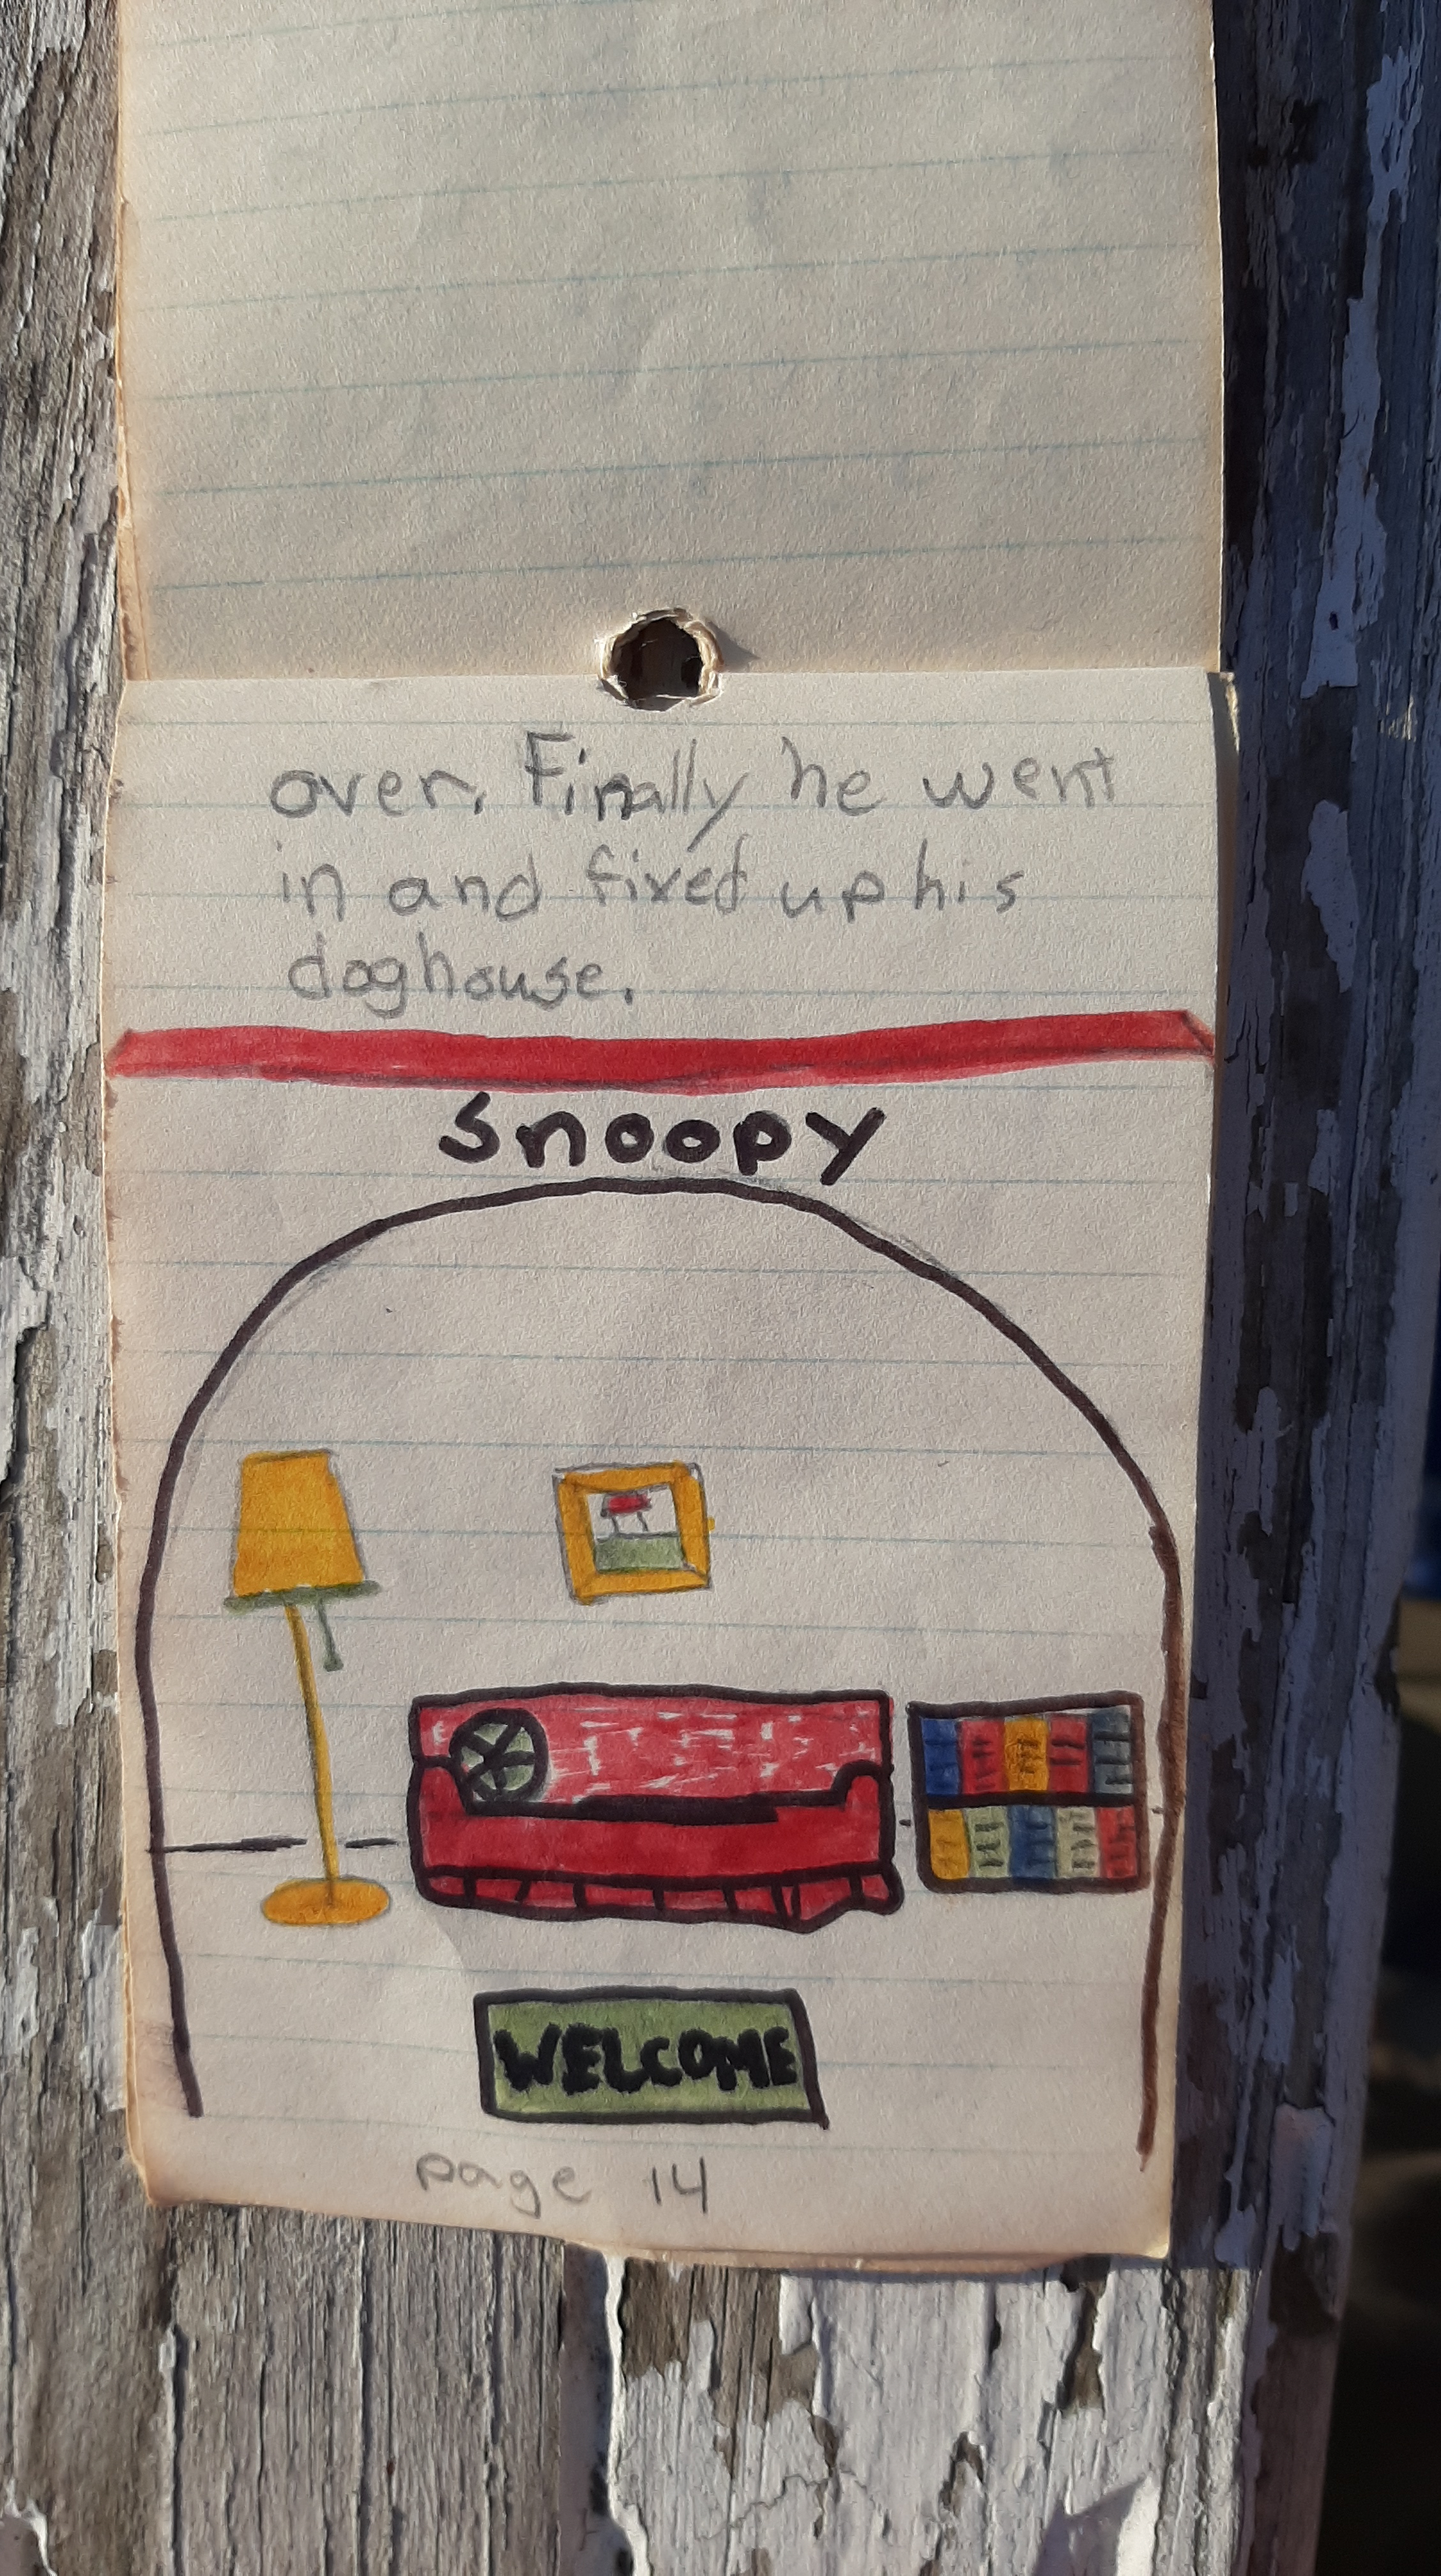 over. Finally he went
in and fixed up his
doghouse.
Snoopy
WELCOME
page 14